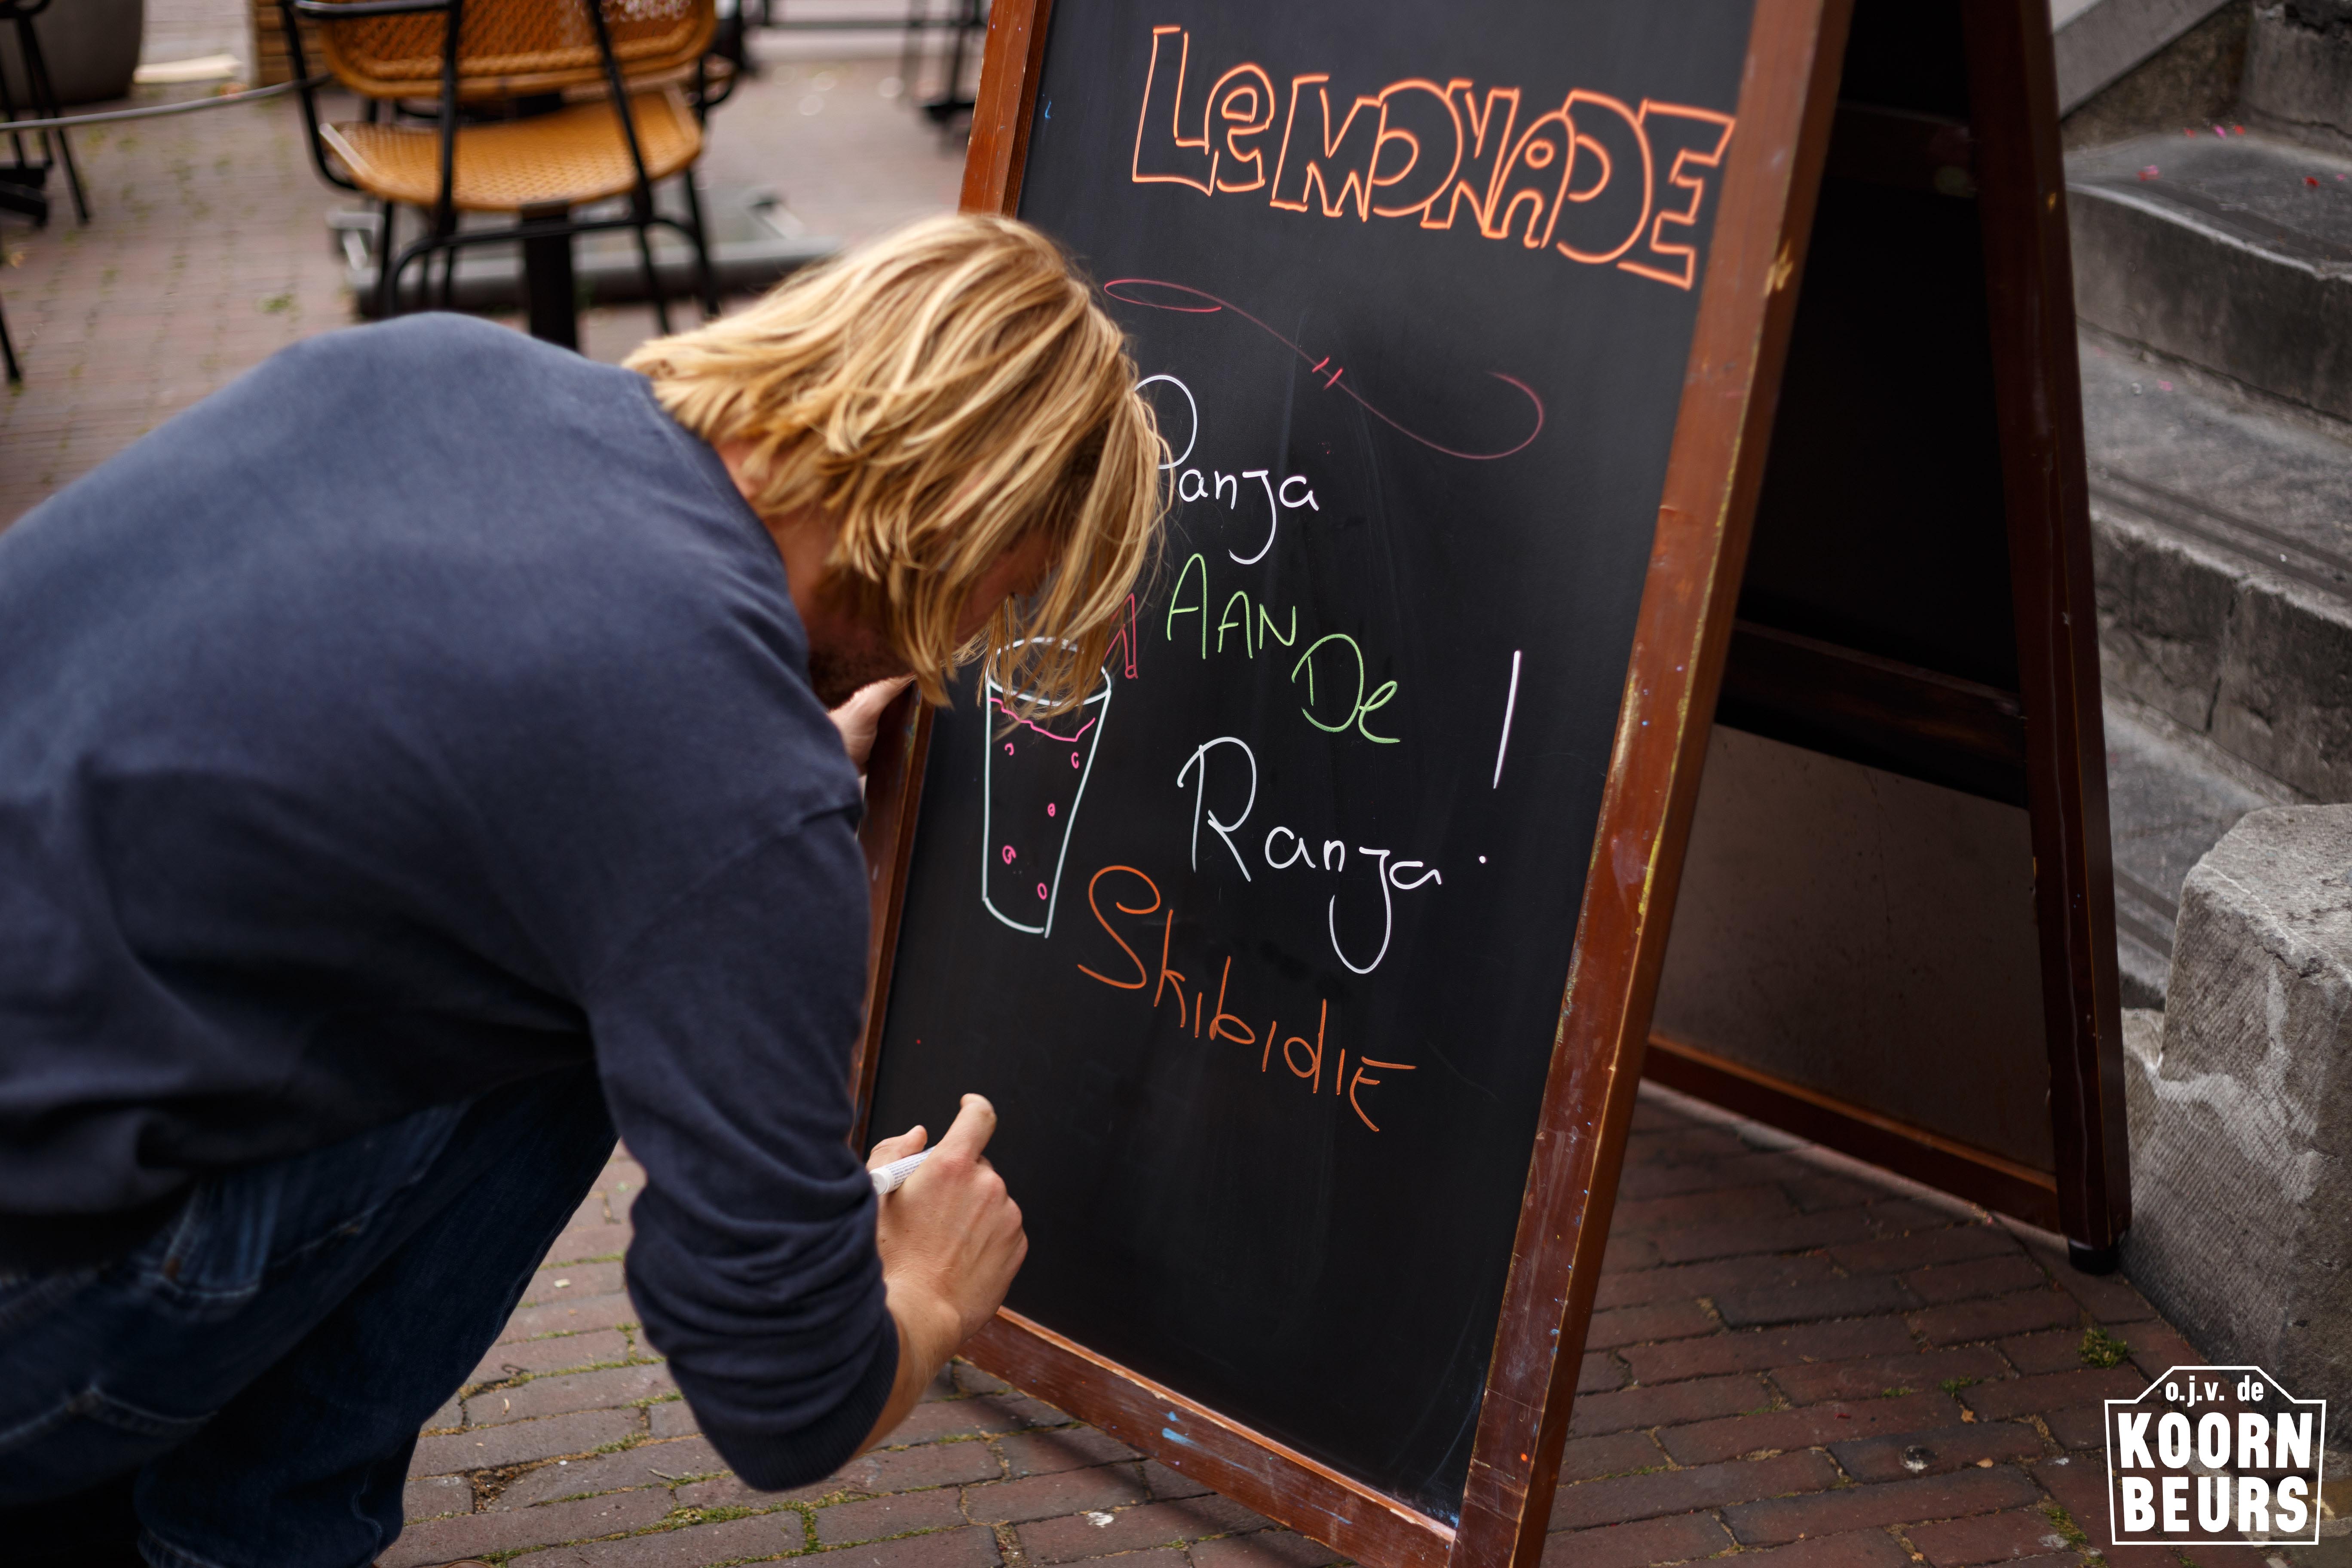 LeMONADE
Ranja
AAN De
Ranja!
SkibidiE
o.j.v. de
KOORN
BEURS